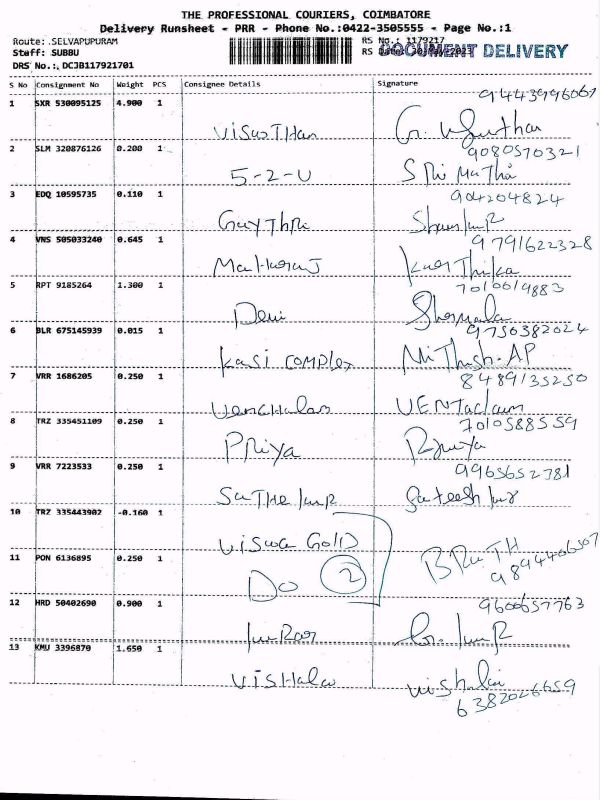 THE PROFESSIONAL COURIERS, COIMBATORE
Delivery Runsheet - PRR - Phone No.:0422-3505555 - Page No.:1
Route: .SELVAPUPURAM RS No.: 1179217
Staff: SUBBU RS Date: DOCUMENT DELIVERY
DRS No.:, DCJB117921701
S No Consignment No Weight PCS Consignee Details Signature
9443996067
1 SXR 530095125 4.900 1
VISWOTHAN
2 SLM 320876126 0.200 1 9080570321
5-2-U SRi MaThi
3 EDQ 10595735 0.110 1 904204824
GayThri
4 VNS 505033240 0.645 1 9791622328
Maharaj KarThika
5 RPT 9185264 1.300 1
Devi Sharmala
6 BLR 675145939 0.015 1 9750382024
Kasi COMPlex NiThish-AP
7 VRR 1686205 0.250 1 8489135250
8 TRZ 335451109 0.250 1 7010588559
PRiya
9 VRR 7223533 0.250 1 9965652781
10 TRZ 335443902 -0.160 1
Viswa GolD
11 PON 6136895 0.250 1
Do 2
12 HRD 50402690 0.900 1 9600657763
13 KMU 3396870 1.650 1
6382026659